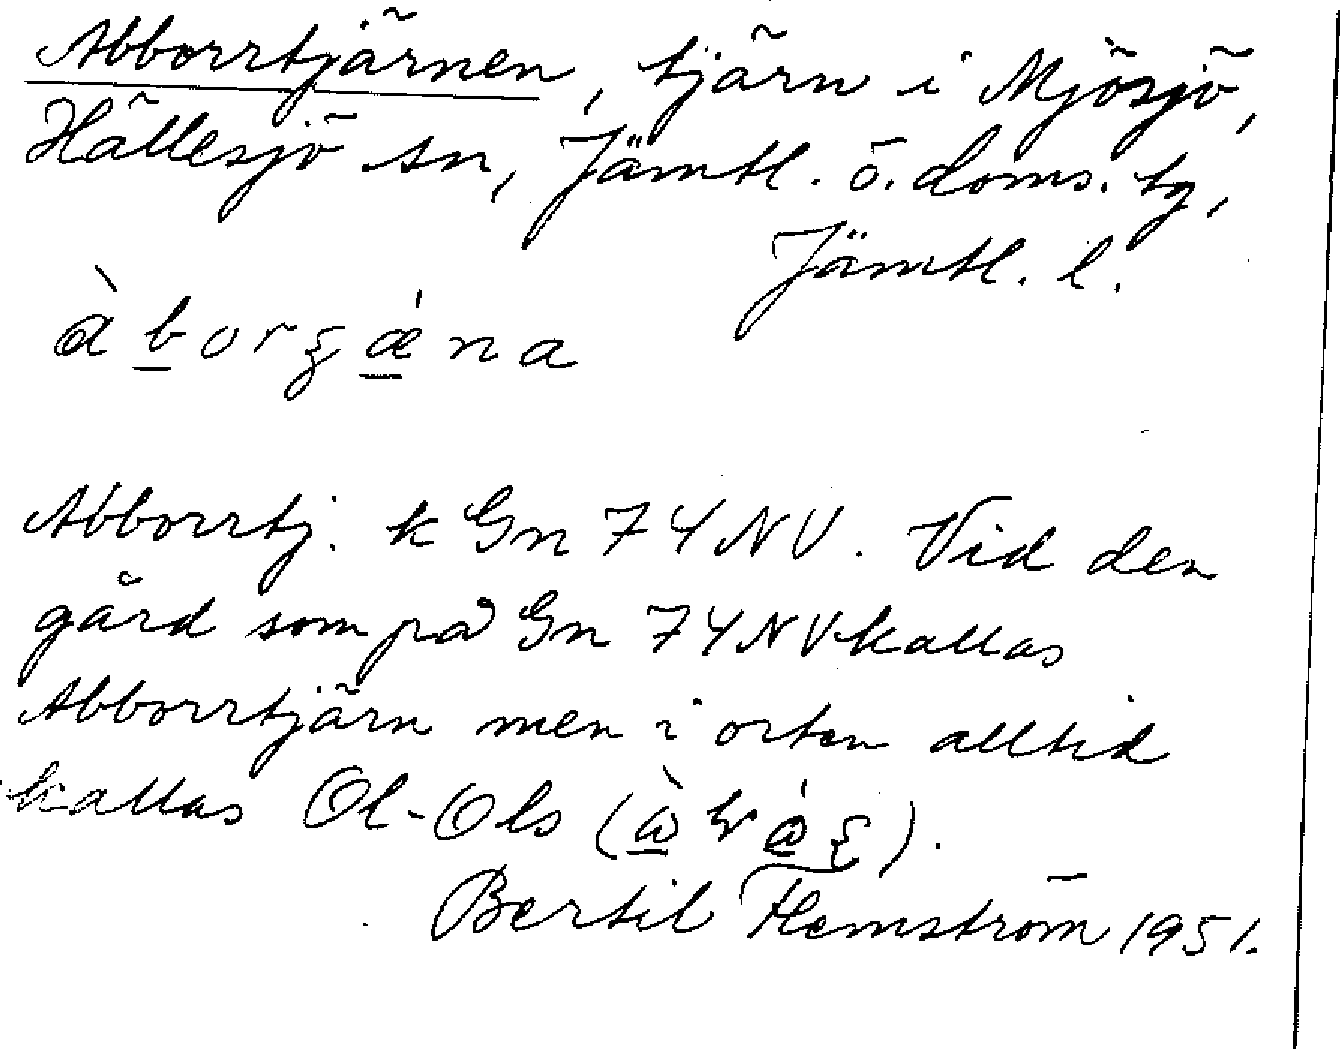 Abborrtjärnen, tjärn i Mjösjö,
Hällesjö sn, Jämtl. ö. doms. tg,
Jämtl. l.
Abborrtj. k Gn 74 NV. Vid den
gård som på Gn 74 NV kallas
Abborrtjärn men i orten alltid
kallas Ol-Ols
Bertil Flemström 1951.